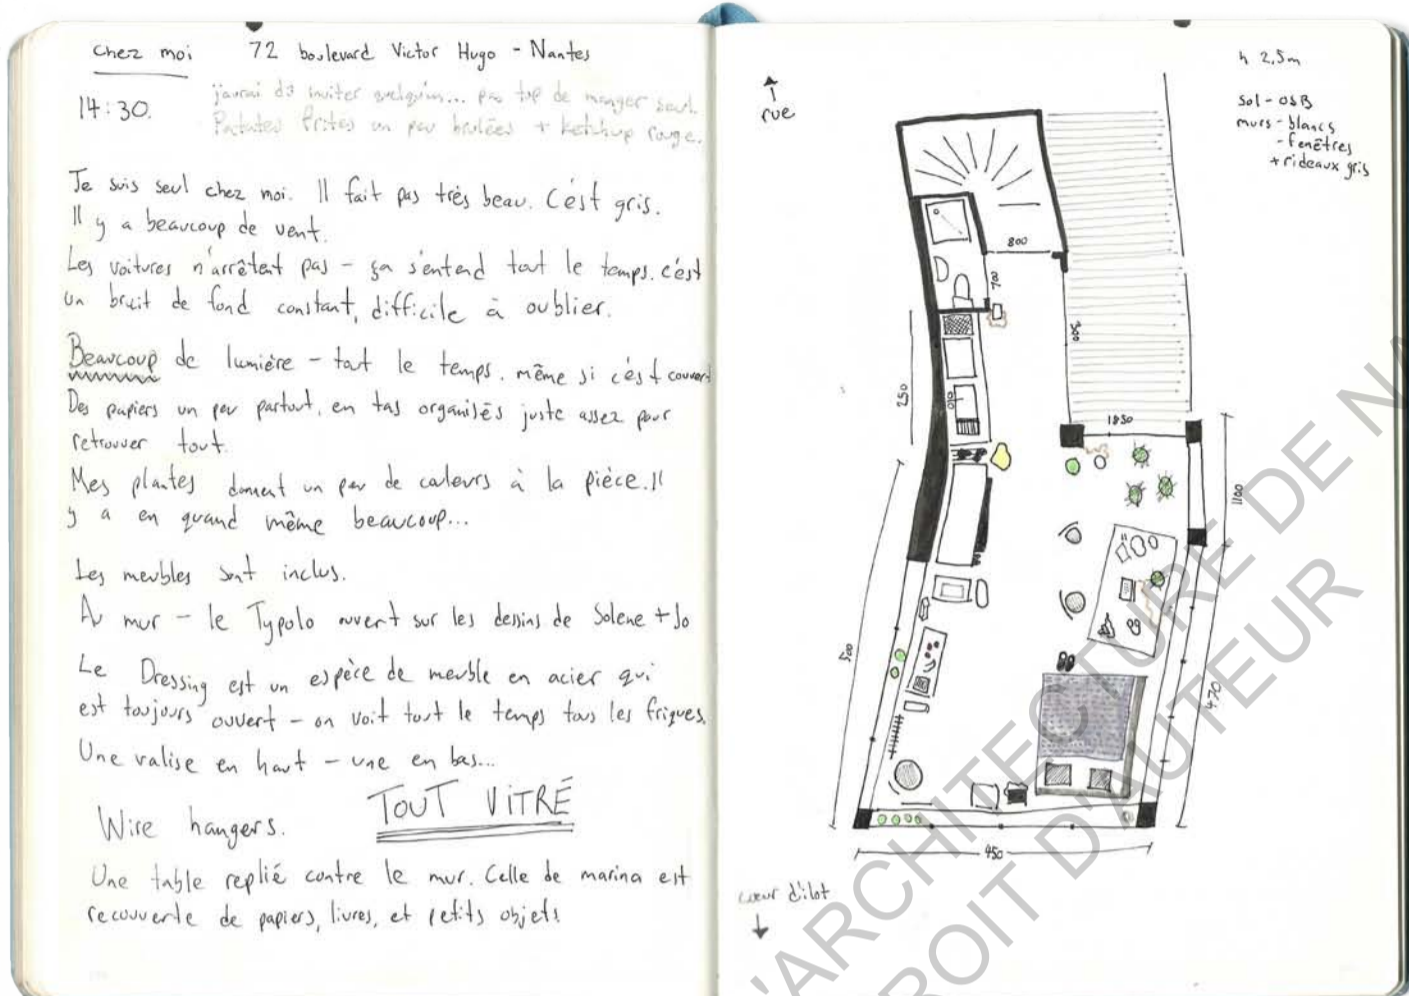 chez moi 72 boulevard Victor Hugo - Nantes
14:30.
j'aurai dû inviter quelqu'un... pas top de manger seul.
Patates frites un peu brulées + ketchup rouge.
Je suis seul chez moi. Il fait pas très beau. C'est gris.
Il y a beaucoup de vent.
Les voitures n'arrêtent pas - ça s'entend tout le temps. c'est
un bruit de fond constant, difficile à oublier.
Beaucoup de lumière - tout le temps. même si c'est couvert
Des papiers un peu partout, en tas organisés juste assez pour
retrouver tout.
Mes plantes donnent un peu de couleurs à la pièce. Il
y a en quand même beaucoup...
Les meubles sont inclus.
Au mur - le Typolo ouvert sur les dessins de Solene + Jo
Le Dressing est un espèce de meuble en acier qui
est toujours ouvert - on voit tout le temps tous les friques.
Une valise en haut - une en bas...
Wire hangers. TOUT VITRÉ
Une table replié contre le mur. Celle de marina est
recouverte de papiers, livres, et petits objets.
rue
h 2,5m
sol - OSB
murs - blancs
- fenêtres
+ rideaux gris
800
700
300
250
010
1850
1100
500
470
450
cœur d'ilot
L'ARCHITECTURE DE NA
DROIT D'AUTEUR